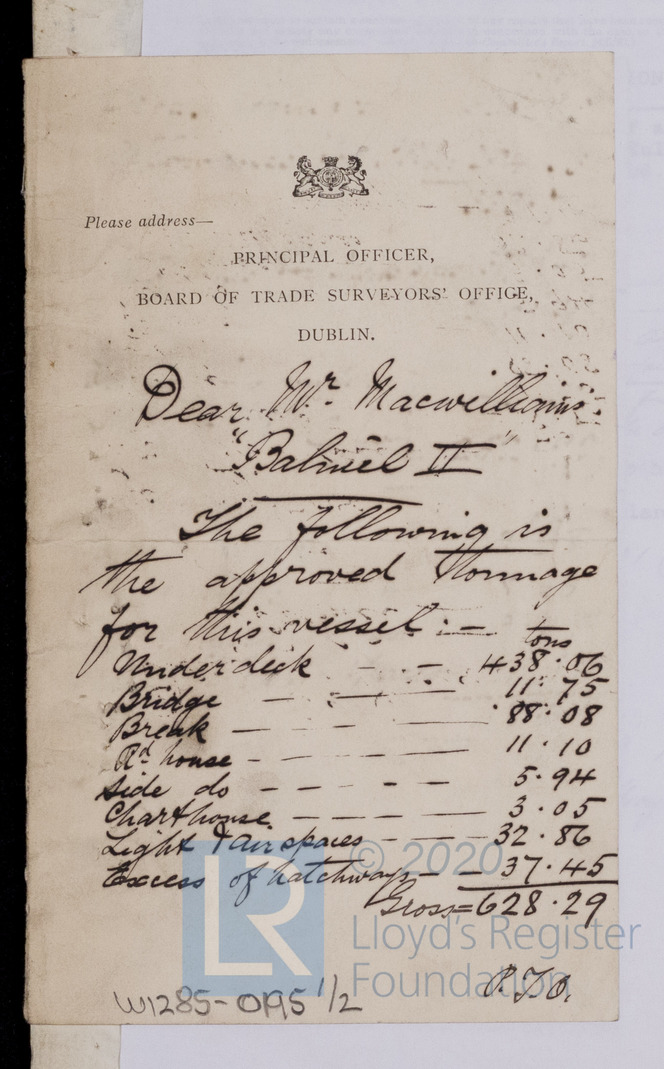 Please address—
PRINCIPAL OFFICER,
BOARD OF TRADE SURVEYORS' OFFICE,
DUBLIN.
Dear Mr. Macwilliam.
"Balniel II"
The following is
the approved tonnage
for this vessel :—
tons
Underdeck — — 438.06
Bridge — — — 11.75
Break — — — 88.08
Rd. house — — — 11.10
Side do — — — — 5.94
Charthouse — — — — 3.05
Light & Air spaces — — — 32.86
Excess of hatchways — — 37.45
Gross = 628.29
P.T.O.
W1285-0195 1/2
© 2020
LR
Lloyd's Register
Foundation